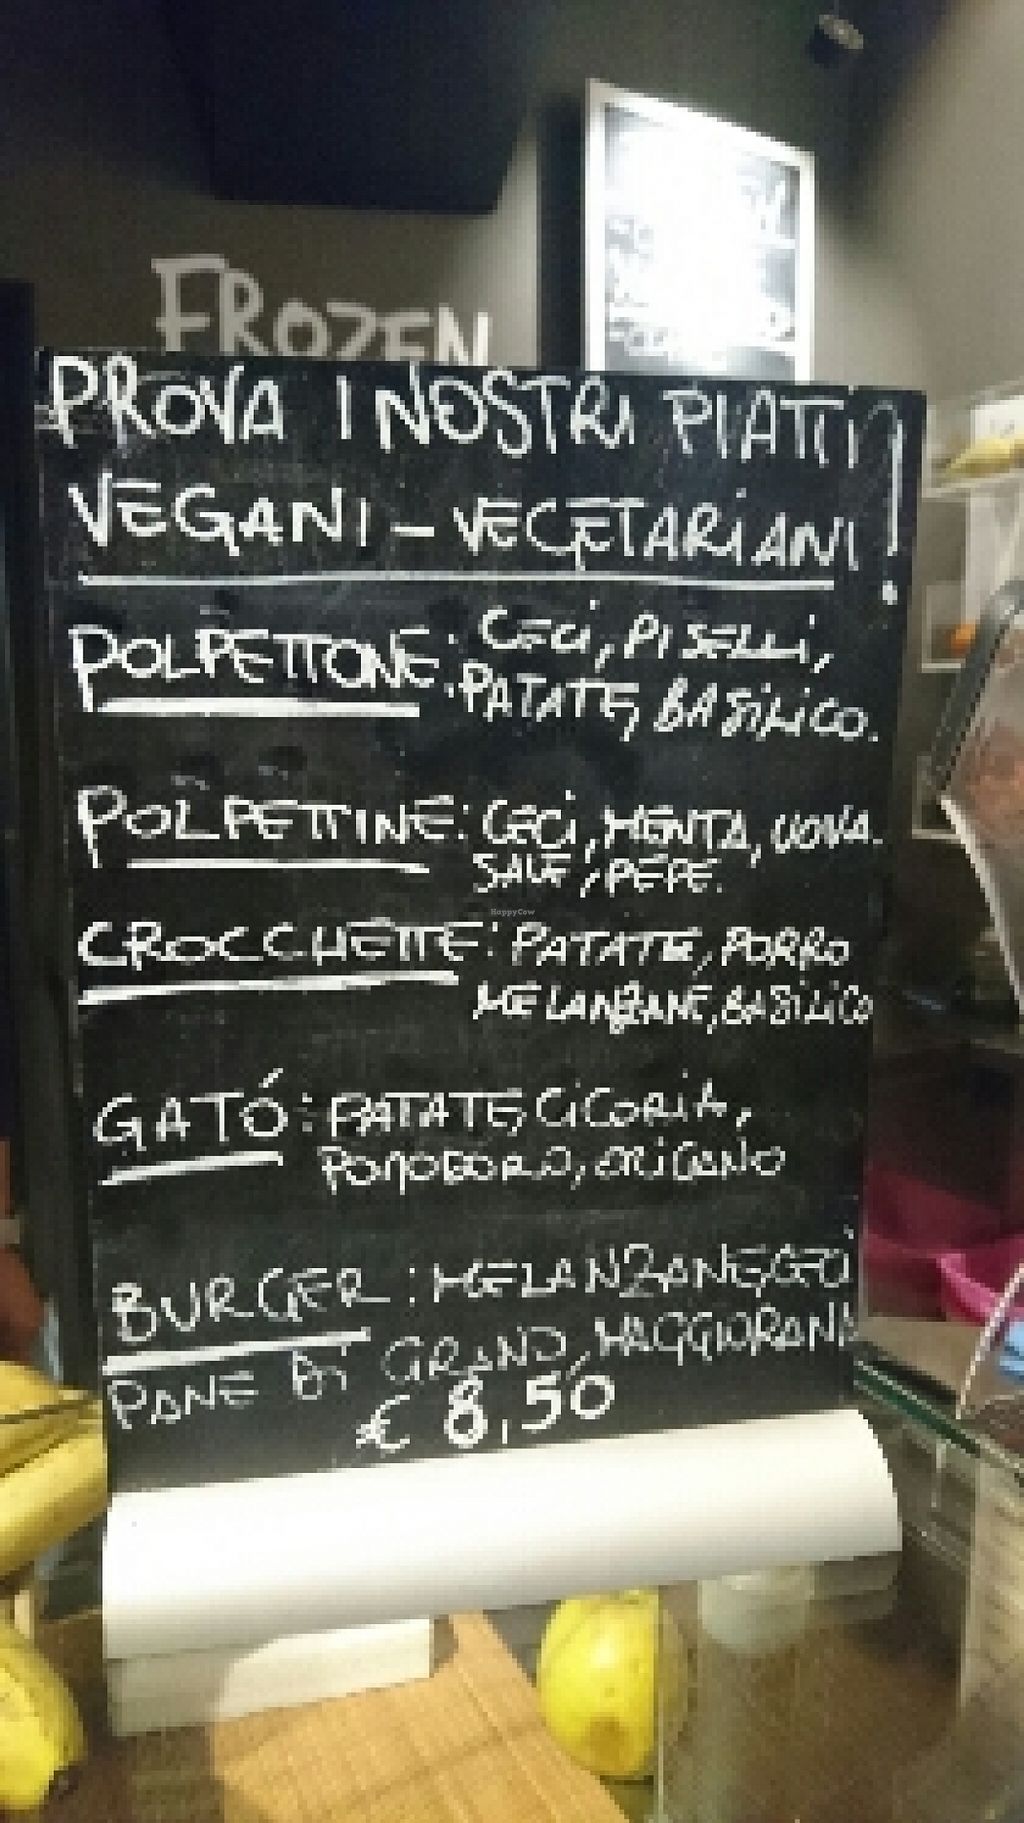 FROZEN
PROVA I NOSTRI PIATTI
VEGANI - VEGETARIANI !
POLPETTONE: CECI, PISELLI,
PATATE, BASILICO.
POLPETTINE: CECI, MENTA, UOVA.
SALE, PEPE.
CROCCHETTE: PATATE, PORRO
MELANZANE, BASILICO
GATÓ: PATATE, CICORIA,
POMODORO, ORIGANO
BURGER: MELANZANE, CECI
PANE DI GRANO, MAGGIORANA
€ 8,50
HappyCow